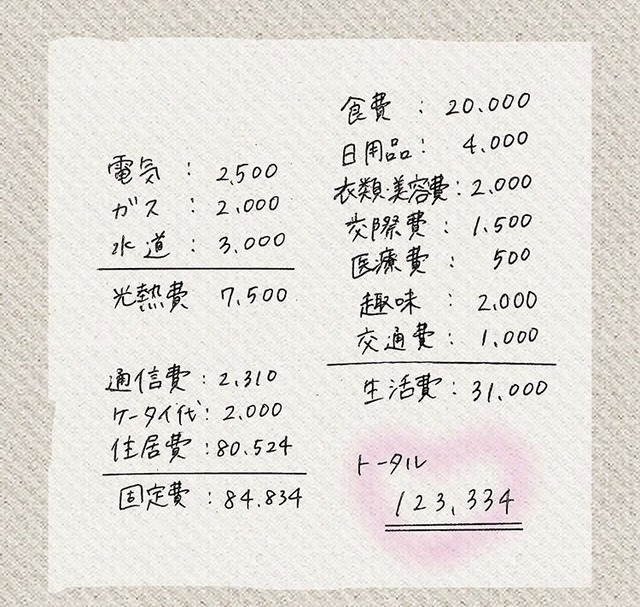 電気 : 2,500
ガス : 2.000
水道 : 3.000
光熱費 7,500
通信費 : 2,310
ケータイ代 : 2.000
住居費 : 80.524
固定費 : 84.834
食費 : 20.000
日用品 : 4.000
衣類・美容費 : 2.000
交際費 : 1,500
医療費 : 500
趣味 : 2,000
交通費 : 1,000
生活費 : 31,000
トータル
123,334